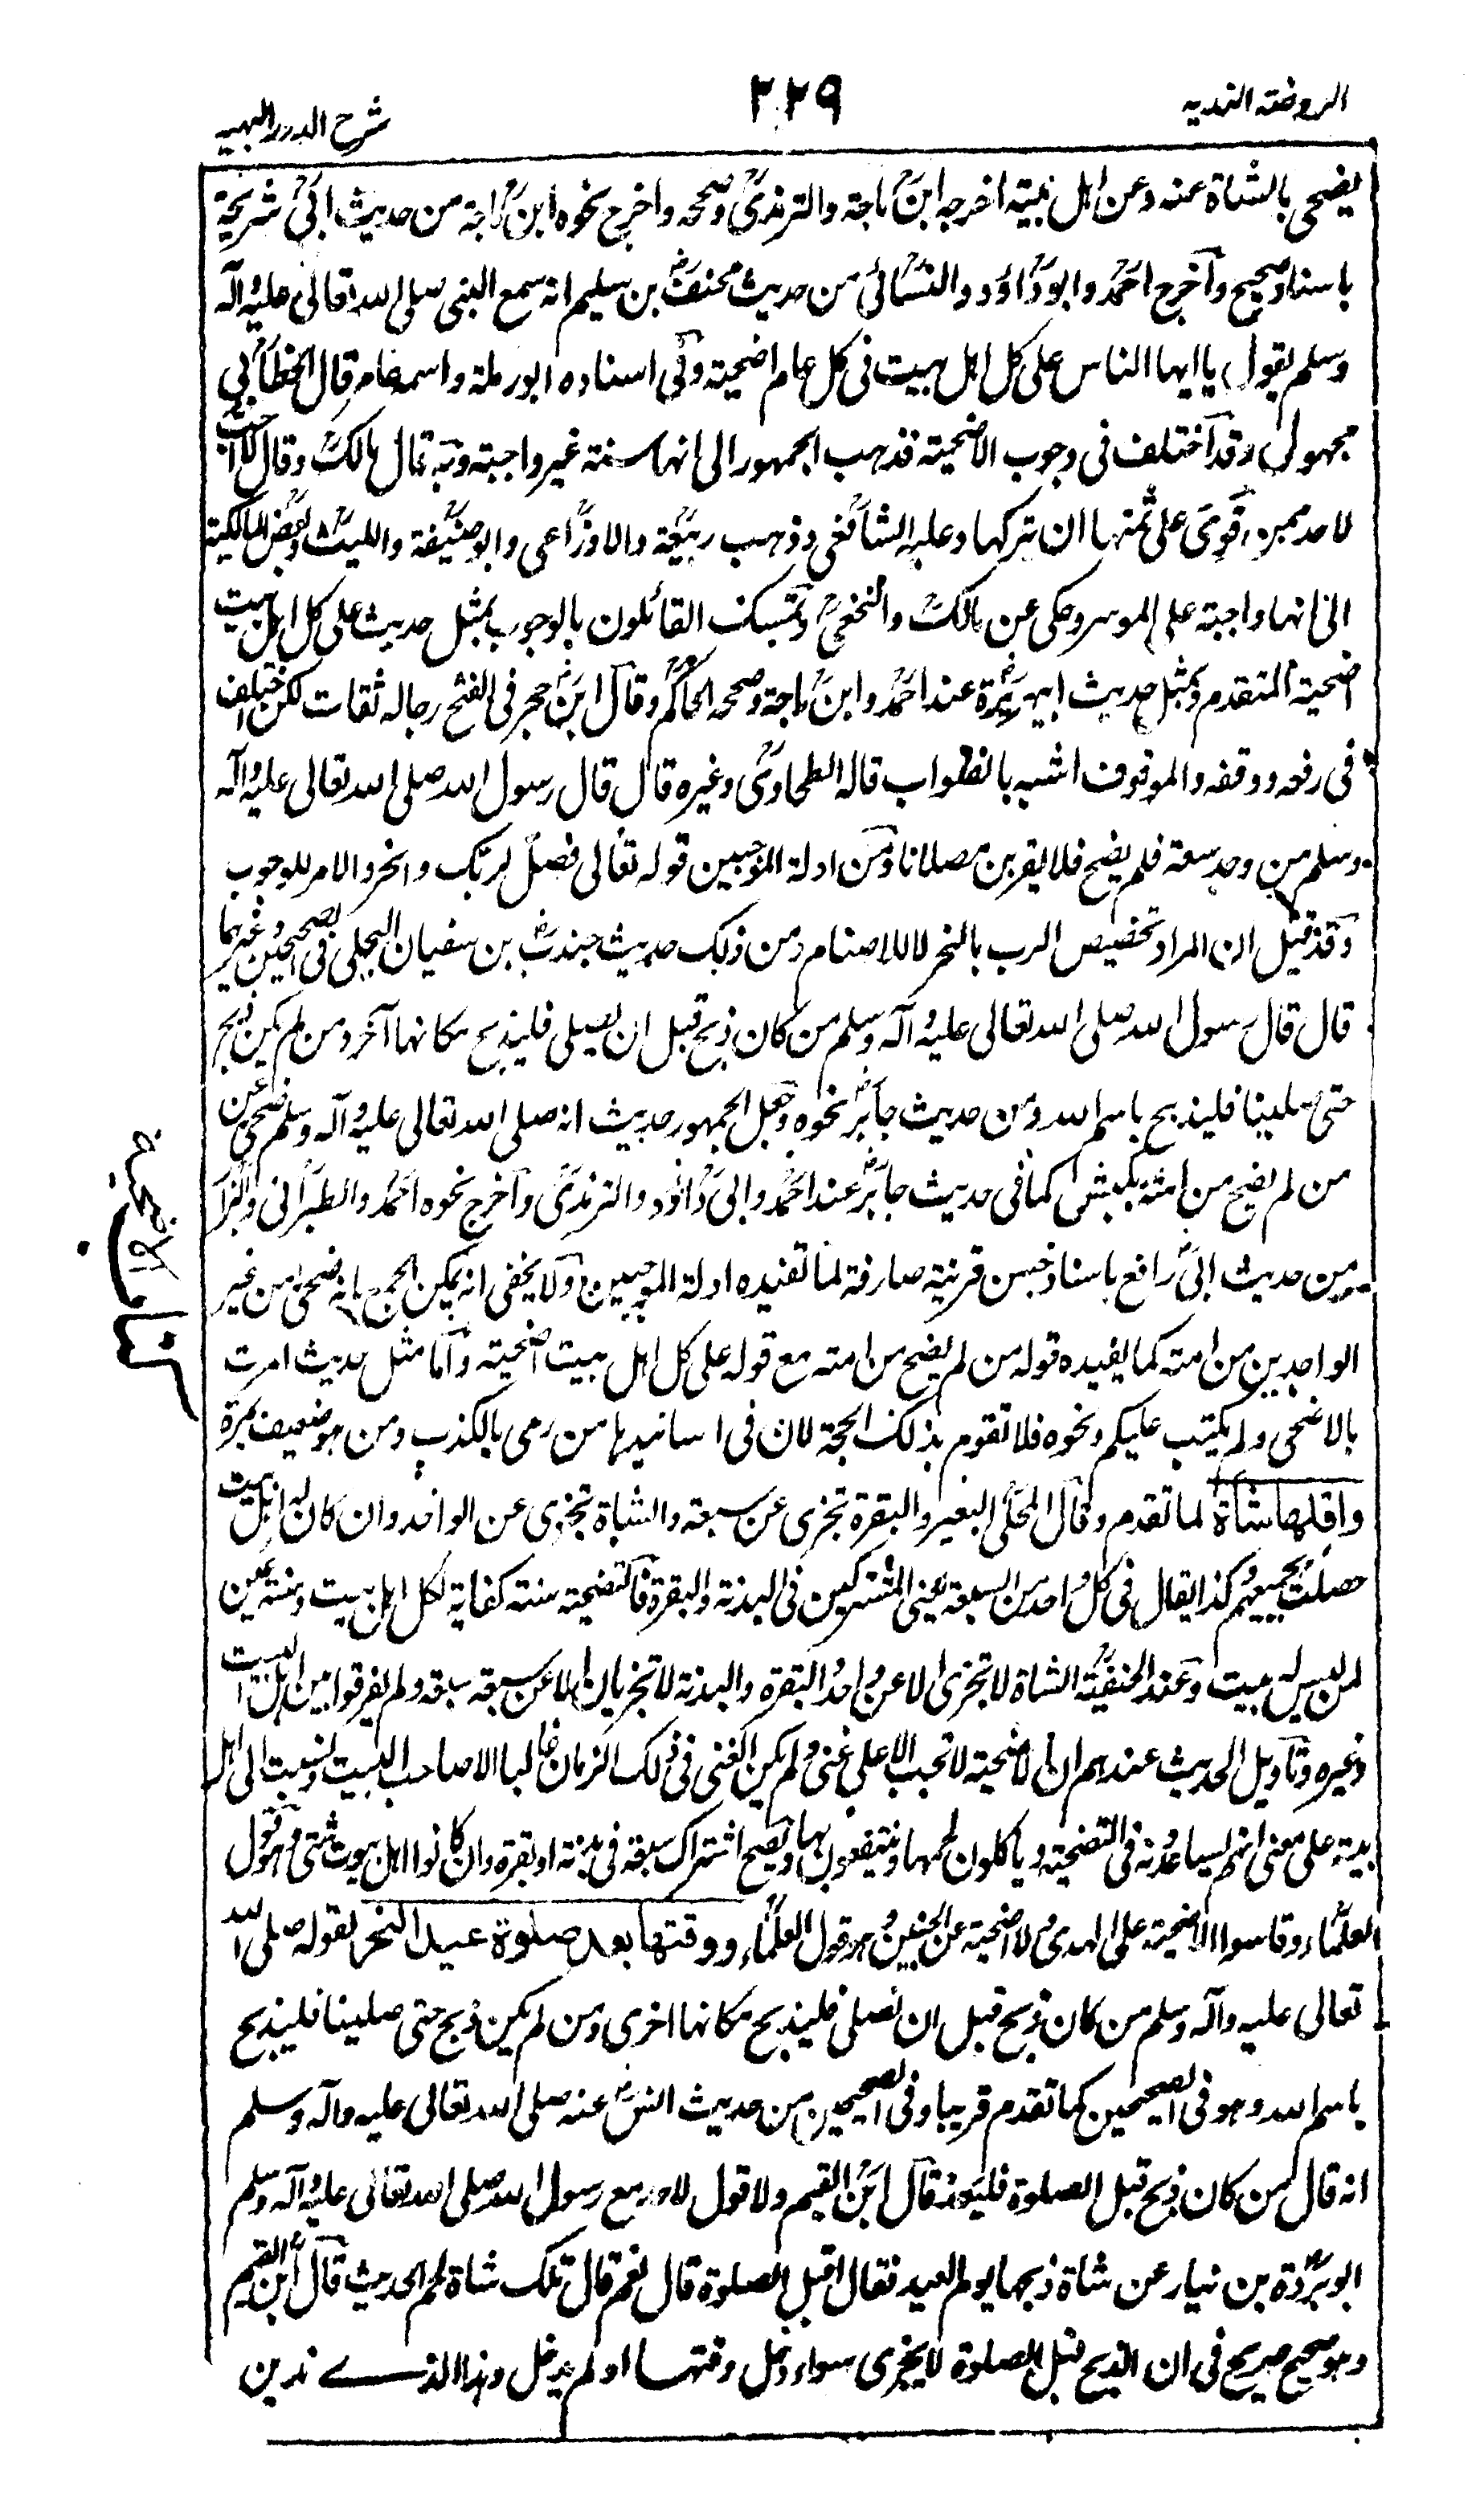 الروضة الندیه
٢٢٩
شرح الدرر البهیه
یضحی بالشاة عنه وعن اهل بیته اخرجه ابن ماجة والترمذی وصححه واخرج نحوه ابن ماجة من حدیث ابی شریحة
باسناد صحیح واخرج احمد وابو داؤد والنسائی من حدیث مخنف بن سلیم انه سمع النبی صلی الله تعالی علیه وآله
وسلم یقول یا ایها الناس علی کل اهل بیت فی کل عام اضحیة وفی اسناده ابو رملة واسمه عامر قال الخطابی
مجهول وقد اختلف فی وجوب الاضحیة فذهب الجمهور الی انها سنة غیر واجبة وبه قال مالک وقال لا احب
لاحد ممن قوی علی ثمنها ان یترکها وعلیه الشافعی وذهب ربیعة والاوزاعی وابو حنیفة واللیث وبعض المالکیة
الی انها واجبة علی الموسر وحکی عن مالک والنخعی وتمسک القائلون بالوجوب بمثل حدیث علی کل اهل بیت
اضحیة المتقدم وبمثل حدیث ابیهریرة عند احمد وابن ماجة وصححه الحاکم وقال ابن حجر فی الفتح رجاله ثقات لکن اختلف
فی رفعه ووقفه والموقوف اشبه بالصواب قاله الطحاوی وغیره قال قال رسول الله صلی الله تعالی علیه وآله
وسلم من وجد سعة فلم یضح فلا یقربن مصلانا ومن ادلة الموجبین قوله تعالی فصل لربک وانحر والامر للوجوب
وقد قیل ان المراد تخصیص الرب بالنحر لا للاصنام ومن ذلک حدیث جندب بن سفیان البجلی فی الصحیحین وغیرهما
قال قال رسول الله صلی الله تعالی علیه وآله وسلم من کان ذبح قبل ان یصلی فلیذبح مکانها آخر ومن لم یکن ذبح
حتی صلینا فلیذبح باسم الله ومن حدیث جابر نحوه وجعل الجمهور حدیث انه صلی الله تعالی علیه وآله وسلم ضحی عن
من لم یضح من امته بکبش کما فی حدیث جابر عند احمد وابی داؤد والترمذی واخرج نحوه احمد والطبرانی والبزار
من حدیث ابی رافع باسناد حسن قرینة صارفة لما تفیده ادلة الموجبین ولا یخفی انه یمکن الجمع بانه ضحی من غیر
الواجدین من امته کما یفیده قوله من لم یضح من امته مع قوله علی کل اهل بیت اضحیة واما مثل حدیث امرت
بالاضحی ولم یکتب علیکم ونحوه فلا تقوم بذلک الحجة لان فی اسانیدها من رمی بالکذب ومن هو ضعیف بمرة
واقلها شاة لما تقدم وقال المحلی البعیر والبقرة تجزی عن سبعة والشاة تجزی عن الواحد وان کان له اهل بیت
حصلت بجمیعهم کذا یقال فی کل واحد من السبعة یعنی المشترکین فی البدنة والبقرة فالتضحیة سنة کفایة لکل اهل بیت وسنة عین
لمن لیس له بیت وعند الحنفیة الشاة لا تجزی الا عن واحد والبقرة والبدنة لا تجزیان الا عن سبعة سبعة ولم یفرقوا بین اهل البیت
وغیره وتاویل الحدیث عندهم ان الاضحیة لا تجب الا علی غنی ولم یکن الغنی فی ذلک الزمان غالبا الا صاحب البیت ونسبت الی اهل
بیته علی معنی انهم یساعدونه فی التضحیة ویاکلون لحمها وینتفعون بها ویصح اشتراک سبعة فی بدنة او بقرة وان کانوا اهل بیوت شتی وهو قول
العلماء وقاسوا الاضحیة علی الهدی ولا اضحیة عن الجنین وهو قول العلماء ووقتها بعد صلوة عید النحر لقوله صلی الله
تعالی علیه وآله وسلم من کان ذبح قبل ان نصلی فلیذبح مکانها اخری ومن لم یکن ذبح حتی صلینا فلیذبح
باسم الله وهو فی الصحیحین کما تقدم قریبا وفی الصحیحین من حدیث انس عنه صلی الله تعالی علیه وآله وسلم
انه قال من کان ذبح قبل الصلوة فلیعد قال ابن القیم ولا قول لاحد مع رسول الله صلی الله تعالی علیه وآله وسلم
ابو بردة بن نیار عن شاة ذبحها یوم العید فقال اقبل الصلوة قال نعم قال تلک شاة لحم الحدیث قال ابن القیم
وهو صحیح صریح فی ان الذبح قبل الصلوة لا یجزی سواء دخل وقتها او لم یدخل وهذا الذی ندین